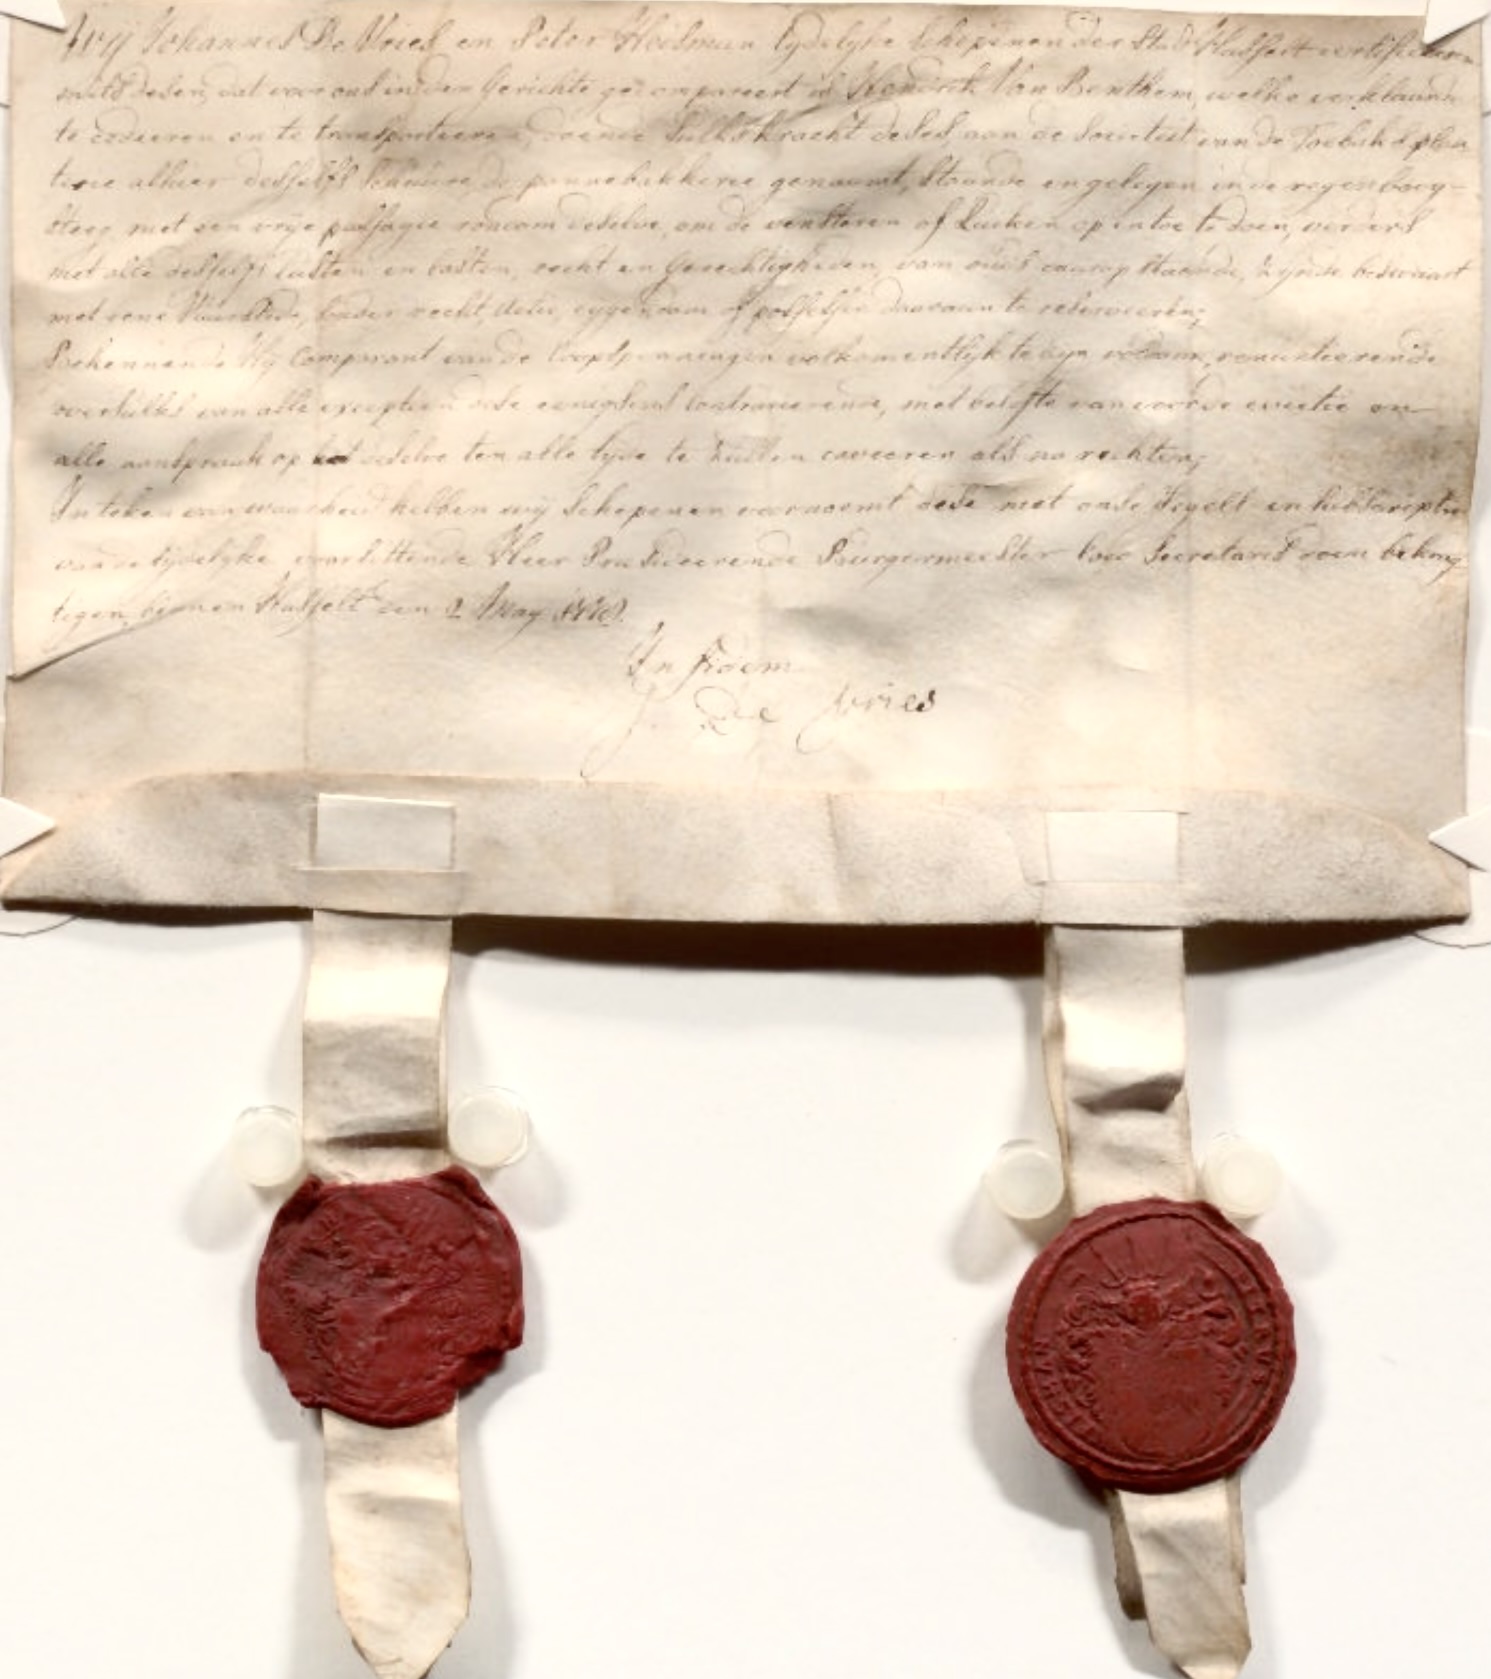 Wij Johannes De Vries en Peter Heesman tydelyke Schepenen der Stad Hasselt certificeeren
mits desen, dat voor ons in den Gerichte gecompareert is Hendrik Van Benthem, welke verklaarde
te cedeeren en te transporteeren, doende sulks kracht deses, aan de Societeit van de Toebaks plan
terie alhier desselfs Schuire de pannebakkerie genaamt, staande en gelegen in de regenboog-
steeg met een vrije passagie rondom deselve, om de vensteren of Luiken op en toe te doen, verders
met alle desselfs lusten en lasten, recht en Gerechtigheden, van ouds daarop staande, zynde beswaart
met eene Vuurstede, sonder recht, actie, eygendom of possessie daaraan te reserveeren;
Bekennende Hy Comparant van de Cooppenningen volkomentlyk te zyn voldaan, renuntieerende
oversulks van alle exceptien dese eenigsins contrarieerende, met belofte van voor de evictie en
alle aanspraak op het selve ten alle tyde te sullen caveeren als na rechten;
In teken van waarheid hebben wij Schepenen voornoemt dese met onse Segels en Subscriptie
van de tydelyke voorsittende Heer Presideerende Burgermeester loco Secretaris doen bekrag
tigen binnen Hasselt den 2 May
In fidem
J. De Vries
PETRUS